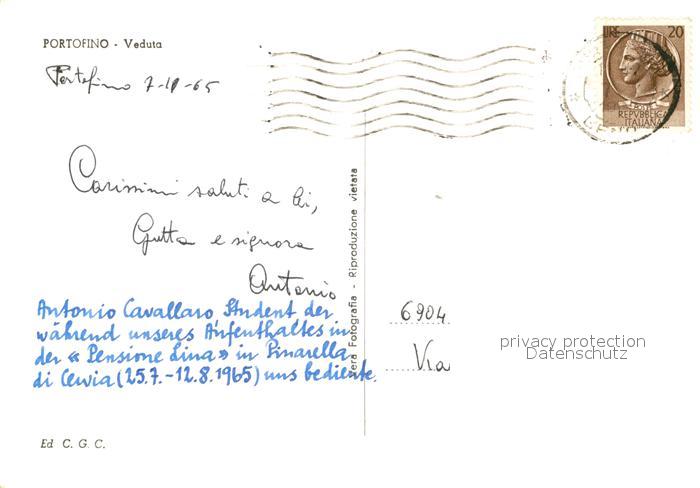 PORTOFINO - Veduta
Portofino 7-10-65
LIRE 20
POSTE
REPVBBLICA
ITALIANA
Carissimi saluti a lei,
Gutta e signora
Antonio
Antonio Cavallaro, Student der
während unseres Aufenthaltes in
der « Pensione Lina » in Pinarella
di Cervia (25.7.-12.8.1965) uns bediente.
Vera Fotografia - Riproduzione vietata
6904
Via
privacy protection
Datenschutz
Ed C. G. C.